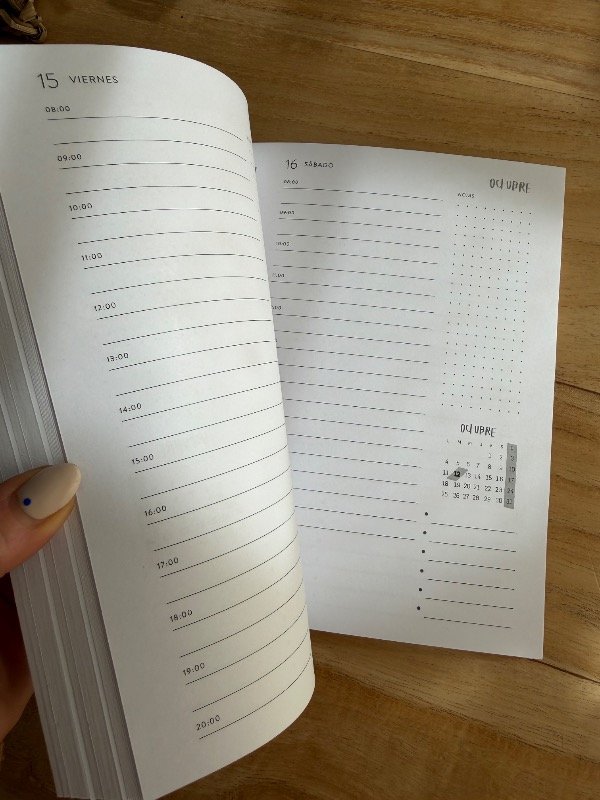 15 VIERNES
08:00
09:00
10:00
11:00
12:00
13:00
14:00
15:00
16:00
17:00
18:00
19:00
20:00
16 SÁBADO
08:00
09:00
10:00
OCTUBRE
NOTAS
OCTUBRE
L M M J V S D
1 2 3
4 5 6 7 8 9 10
11 12 13 14 15 16 17
18 19 20 21 22 23 24
25 26 27 28 29 30 31